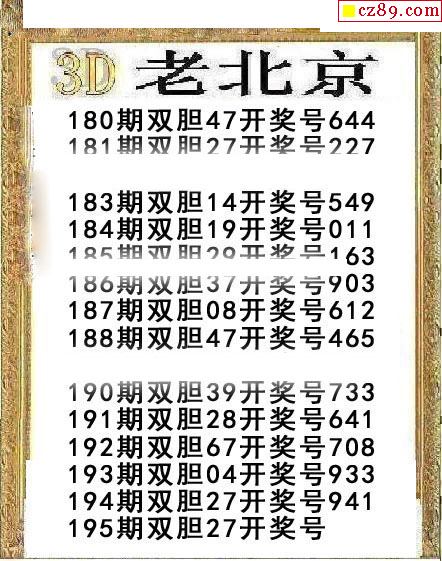 cz89.com
3D 老北京
180期双胆47开奖号644
181期双胆27开奖号227
183期双胆14开奖号549
184期双胆19开奖号011
185期双胆29开奖号163
186期双胆37开奖号903
187期双胆08开奖号612
188期双胆47开奖号465
190期双胆39开奖号733
191期双胆28开奖号641
192期双胆67开奖号708
193期双胆04开奖号933
194期双胆27开奖号941
195期双胆27开奖号